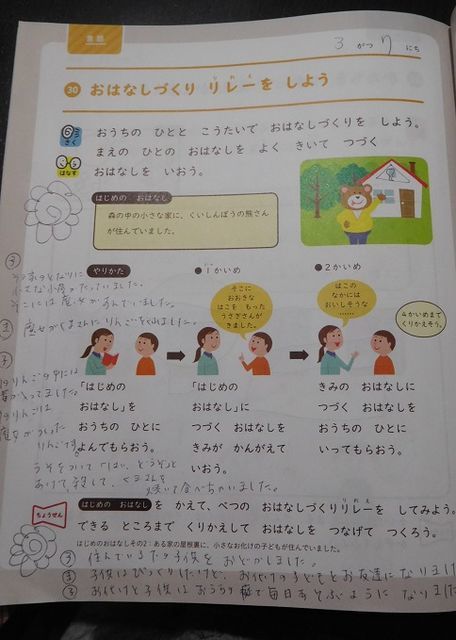 言語
3 がつ 7 にち
30 おはなしづくり リレーを しよう
さく
はなす
おうちの ひとと こうたいで おはなしづくりを しよう。
まえの ひとの おはなしを よく きいて つづく
おはなしを いおう。
はじめの おはなし
森の中の小さな家に、くいしんぼうの熊さん
が住んでいました。
やりかた
●1かいめ
●2かいめ
そこに
おおきな
はこを もった
うさぎさんが
きました。
はこの
なかには
おいしそうな
……
4かいめまで
くりかえそう。
そこには魔女がすんでいました。
魔女がくまさんにりんごをくれました。
「はじめの
おはなし」を
おうちの ひとに
よんでもらおう。
「はじめの
おはなし」に
つづく おはなしを
きみが かんがえて
いおう。
きみの おはなしに
つづく おはなしを
おうちの ひとに
いってもらおう。
りんごの中には
りんごは
魔女がつくった
りんごです。
食べちゃいました。
ちょうせん
はじめの おはなし を かえて、べつの おはなしづくりリレーを してみよう。
できる ところまで くりかえして おはなしを つなげて つくろう。
はじめのおはなしその2:ある家の屋根裏に、小さなお化けの子どもが住んでいました。
住んでいた 子供を おどかしました。
子供はびっくりしたけど、お化けの子どもとお友達に なりまし
お化けと子供は おうちの 毎日あそぶように なりまし